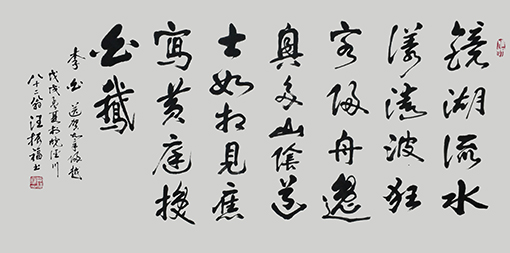 鏡湖流水
漾清波狂
客歸舟逸
興多山陰道
士如相見應
寫黄庭換
白鵝
李白 送賀賓客歸越
戊戌夏於皖涇川
八十三翁汪振福書